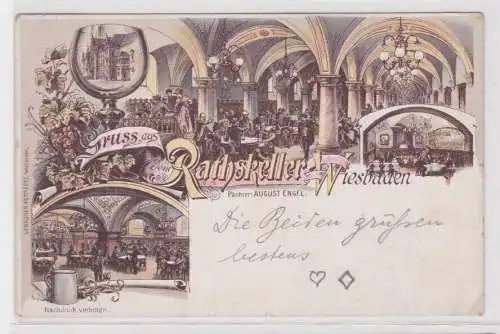 Gruss aus
dem
Rathskeller Wiesbaden
Pächter: AUGUST ENGEL.
Die Beiden grüssen
bestens
♡ ◇
Nachdruck verboten.